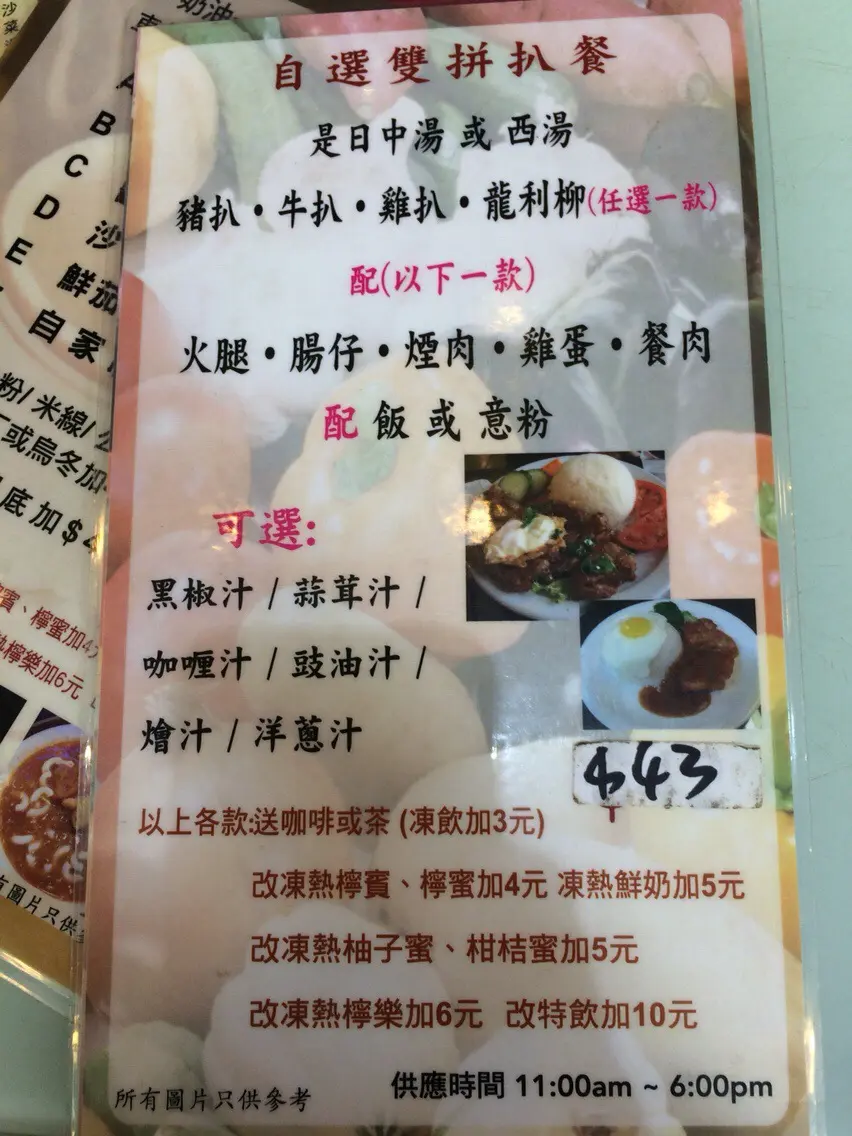 自選雙拼扒餐
是日中湯 或 西湯
豬扒・牛扒・雞扒・龍利柳(任選一款)
配(以下一款)
火腿・腸仔・煙肉・雞蛋・餐肉
配 飯 或 意粉
可選:
黑椒汁 / 蒜茸汁 /
咖喱汁 / 豉油汁 /
燴汁 / 洋蔥汁
$43
以上各款:送咖啡或茶 (凍飲加3元)
改凍熱檸賓、檸蜜加4元 凍熱鮮奶加5元
改凍熱柚子蜜、柑桔蜜加5元
改凍熱檸樂加6元 改特飲加10元
供應時間 11:00am ~ 6:00pm
所有圖片只供參考
奶油
B
C
D 沙
E 鮮茄
自家
粉/ 米線/
或烏冬加
底 加$
賓、檸蜜加4
熱檸樂加6元
圖片只供